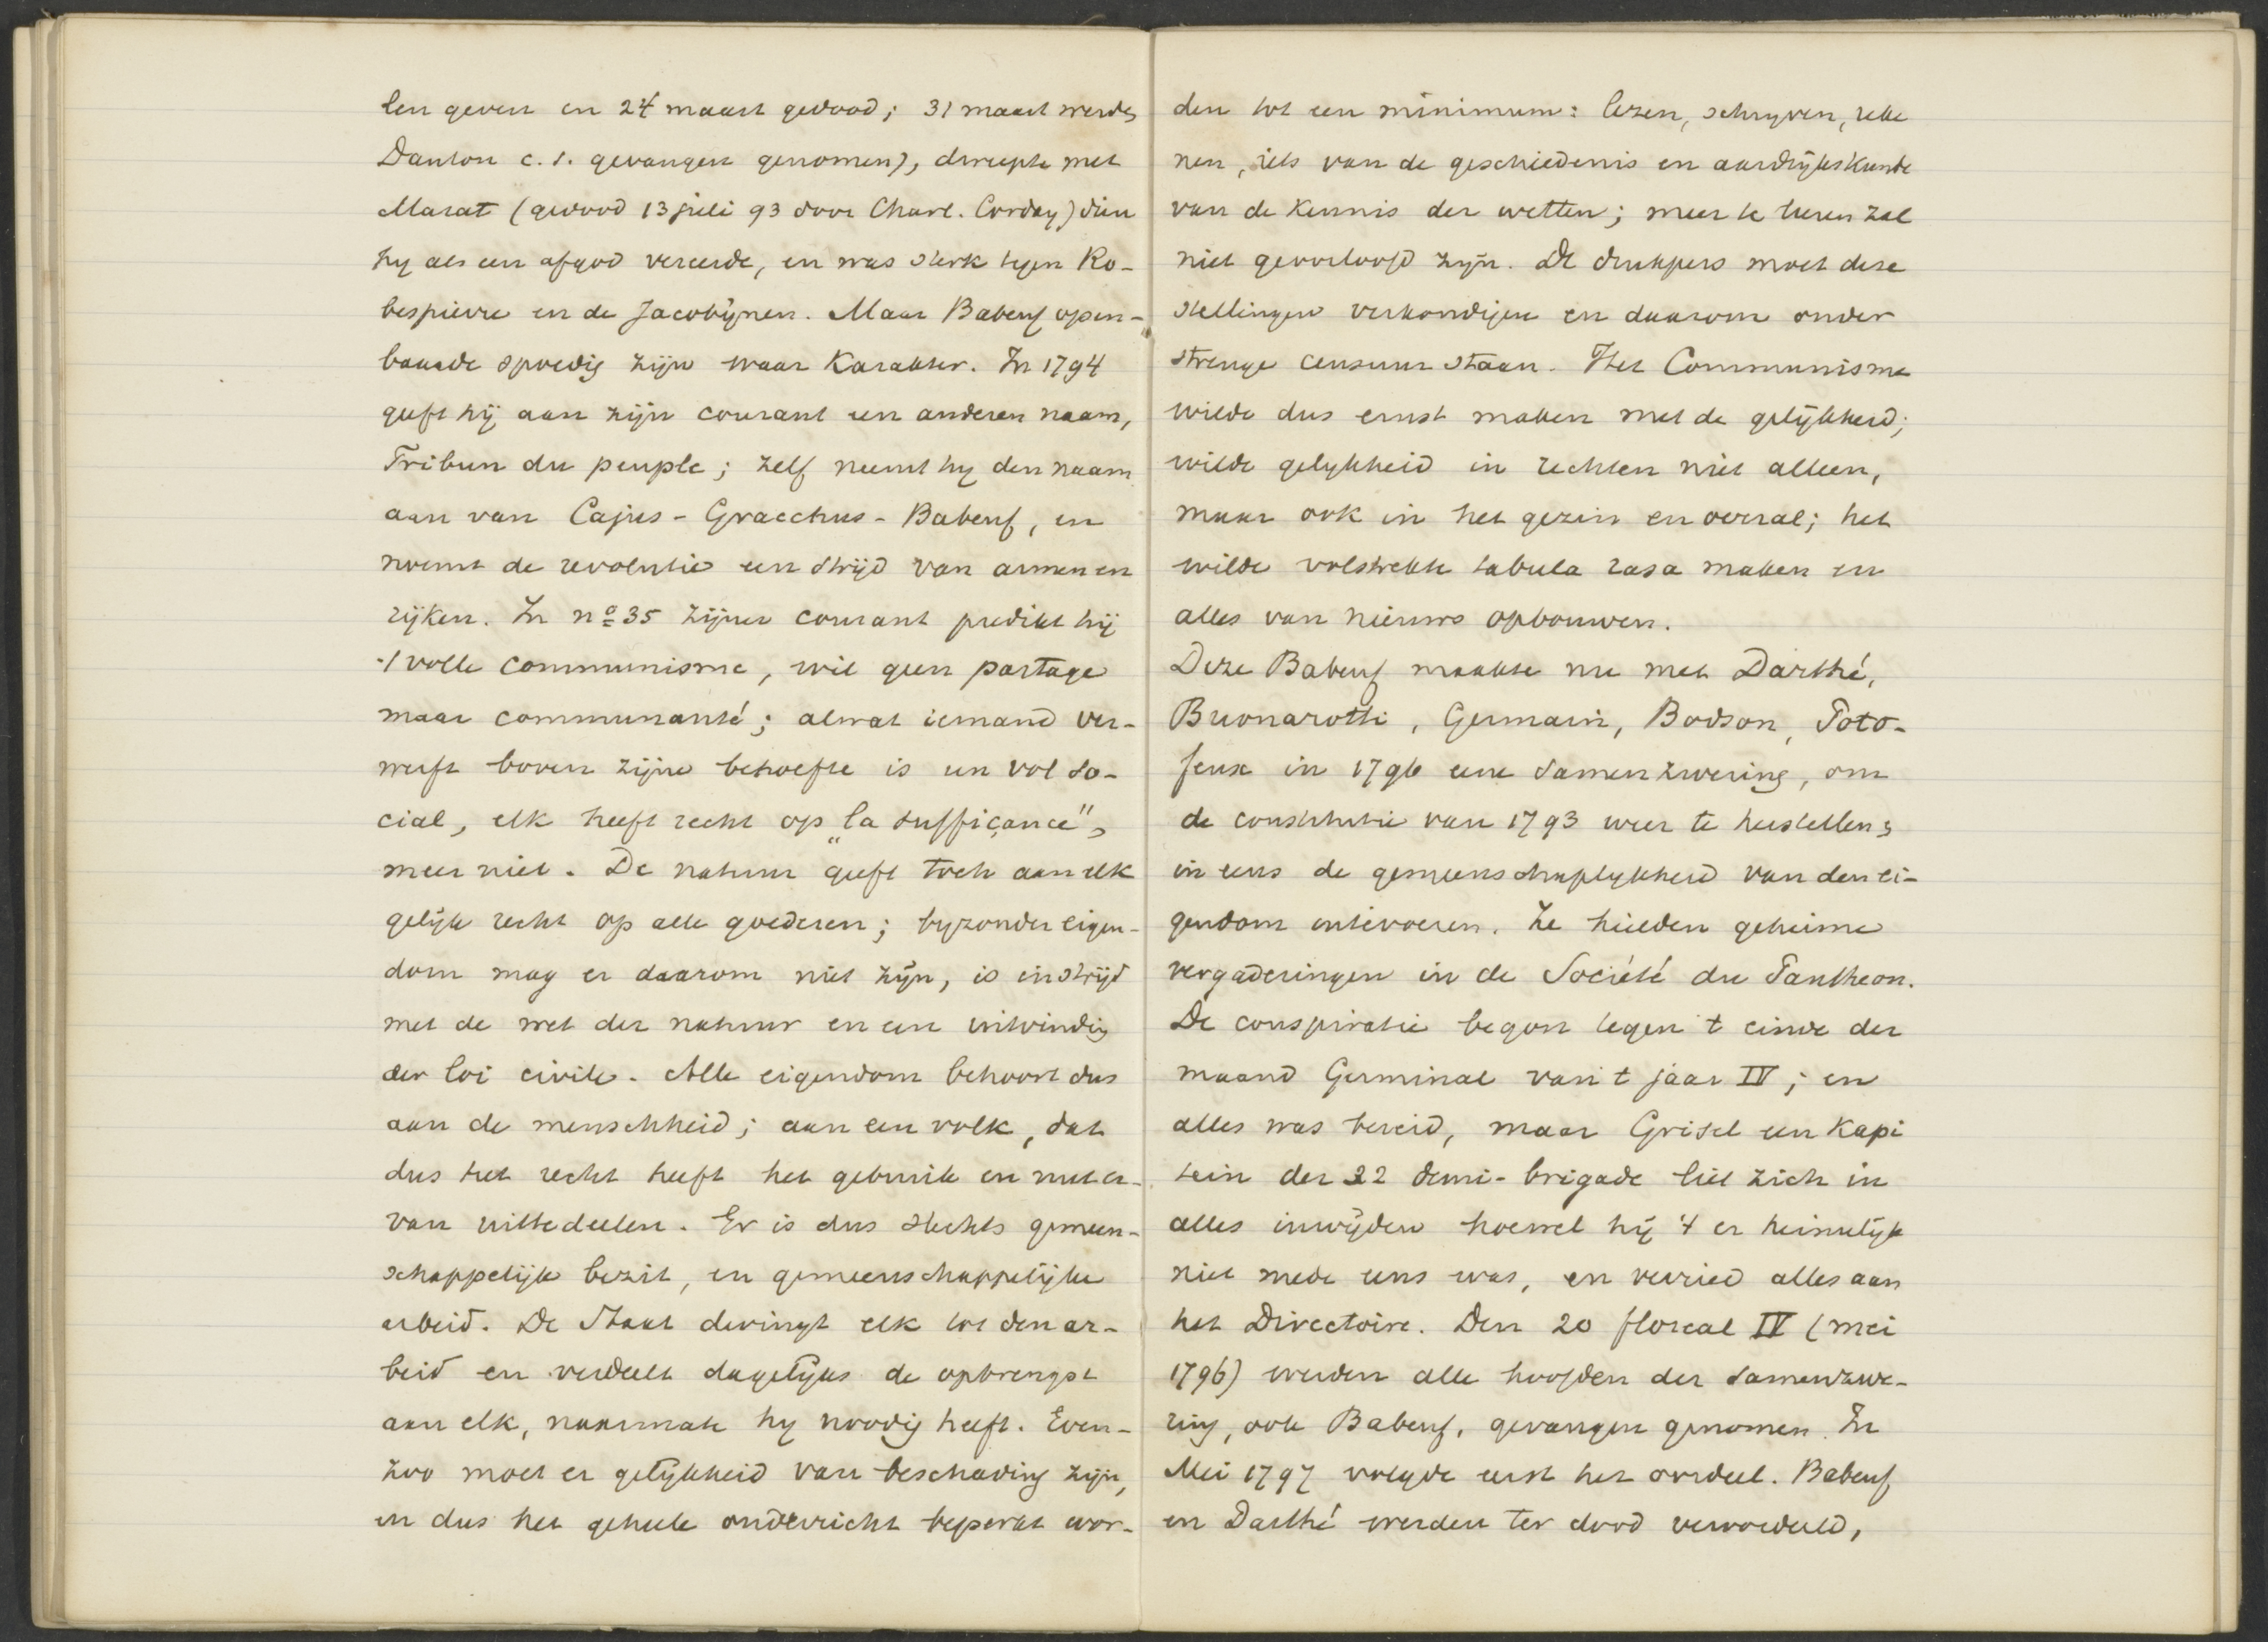 len geven en 24 maart gedood; 31 maart werden
Danton c.s. gevangen genomen), dweepte met
Marat (gedood 13 juli 93 door Charl. Corday) dien
hy als een afgod vereerde, en was sterk tegen Ro-
bespierre en de Jacobijnen. Maar Babeuf open-
baarde spoedig zijn waar karakter. In 1794
geeft hij aan zijn courant een anderen naam,
Tribun du peuple; zelf neemt hy den naam
aan van Cajus-Gracchus-Babeuf, en
noemt de revolutie een strijd van armen en
rijken. In no 35 zijner courant predikt hij
't volle communisme, wil geen partage
maar communauté; alwat iemand ver-
werft boven zijne behoefte is un vol so-
cial, elk heeft recht op „la suffiçance",
meer niet. De natuur geeft toch aan elk
gelijk recht op alle goederen; byzonder eigen-
dom mag er daarom niet zijn, is in strijd
met de wet der natuur en een uitvinding
der loi civile. Alle eigendom behoort dus
aan de menschheid; aan een volk, dat
dus het recht heeft het gebruik en nut er-
van uittedeelen. Er is dus slechts gemeen-
schappelijk bezit, en gemeenschappelijke
arbeid. De Staat dwingt elk tot den ar-
beid en verdeelt dagelijks de opbrengst
aan elk, naarmate hy noodig heeft. Even-
zoo moet er gelijkheid van beschaving zijn,
en dus het geheele onderricht beperkt wor-
den tot een minimum: lezen, schryven, reke
nen, iets van de geschiedenis en aardrijkskunde
van de kennis der wetten; meer te leeren zal
niet geoorloofd zijn. De drukpers moet deze
stellingen verkondigen en daarom onder
strenge censuur staan. Het Communisme
wilde dus ernst maken met de gelijkheid;
wilde gelykheid in rechten niet alleen,
maar ook in het gezin en overal; het
wilde volstrekte tabula rasa maken en
alles van nieuws opbouwen.
Deze Babeuf maakte nu met Darthé,
Buonarotti, Germain, Bodson, Poto-
feux in 1796 eene samenzwering, om
de constitutie van 1793 weer te herstellen &
in eens de gemeenschaplykheid van den ei-
gendom intevoeren. Ze hielden geheime
vergaderingen in de Société du Pantheon.
De conspiratie begon tegen 't einde der
maand Germinal van 't jaar IV; en
alles was bereid, maar Grisel een kapi
tein der 22 demi-brigade liet zich in
alles inwijden hoewel hij 't er heimelijk
niet mede eens was, en verried alles aan
het Directoire. Den 20 floreal IV (mei
1796) werden alle hoofden der samenzwe-
ring, ook Babeuf, gevangen genomen. In
Mei 1797 volgde eerst het oordeel. Babeuf
en Darthé werden ter dood veroordeeld,